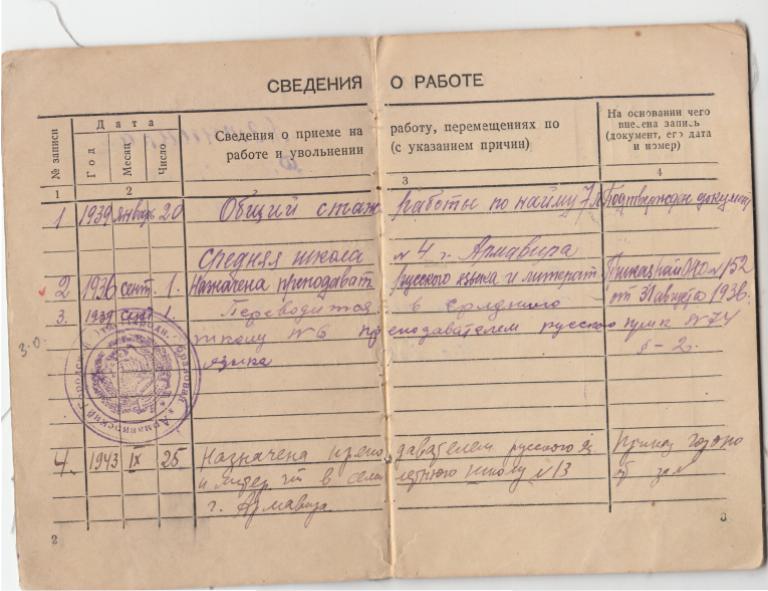 СВЕДЕНИЯ О РАБОТЕ
№ записи
Дата
Год
Месяц
Число
Сведения о приеме на работу, перемещениях по
работе и увольнении (с указанием причин)
На основании чего
внесена запись
(документ, его дата
и номер)
1 2 3 4
1 1939 январь 20 Общий стаж работы по найму 7 л Подтвержден докумен
Средняя школа №4 г. Армавира
2 1936 сент. 1. Назначена преподават. русского языка и литерат. Приказ №152
от 31 августа 1936.
3. 1939 сент 1. Переводится в среднюю
школу №6 преподавателем русского №74
языка §-2.
З.О.
4. 1943 IX 25 Назначена препо давателем русского яз. Приказ
и литер. в семилетнюю школу №13
г. Армавира
2
3